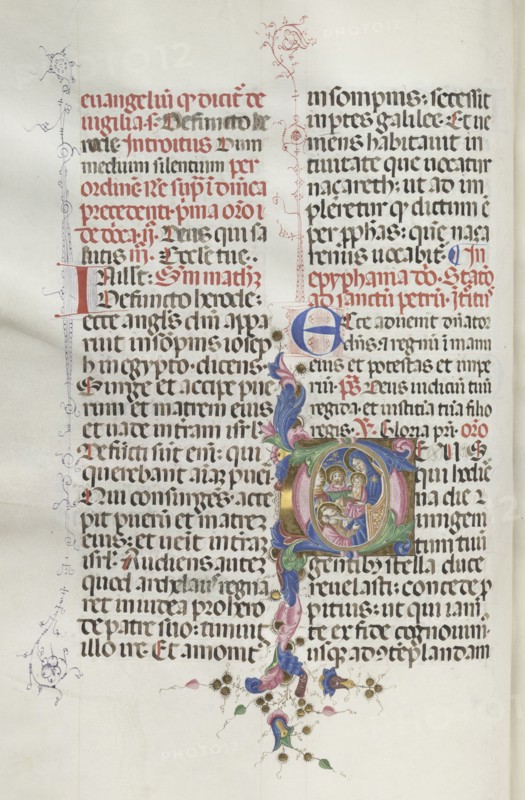 euangeliū qd dicit de
uigilia. s. Defuncto he
rode. Introitus Dum
medium silentium per
ordinē Re supᵃ ī dnīca
precedenti. pīma oro ī
de octaᵃ. ij. Deus qui sa
lutis iij. Eccle tue.
In illo t. Sm matheū
Defuncto herode:
ecce angls dnī appa
ruit in sopnis ioseph
in egypto. dicens.
Surge et accipe pue
rum et matrem eius
et uade in tram isrl.
Defuncti sūt eni: qui
querebant aiaz pueri
Qui consurgens. acce
pit puerū et matrez
eius: et uēit in traz
isrl. Audiens autez
quod archelaus regna
ret in iudea pro hero
de patre suo: timuit
illo ire. Et amonit
in sompnis: secessit
in ptes galilee. Et ue
niens habitauit in
ciuitate que uocatur
nazareth: ut ad im
pleretur qd dictum ē
per pphas: quē naza
renus uocabit. In
epyphania dō. Statō
ad sanctū petrū. Itītus
Ecce aduenit dnator
dūs: a regnū ī manu
eius et potestas et impe
riū. ps Deus iudiciū tuū
regi da. et iustitia tua filio
regis. V. Gloria pri. oro
DEUS
qui hodie
na die
unigeni
tum tuū
gentib; stella duce
reuelasti: concede p
pitius: ut qui iam
te ex fide cognouim
usqz ad 9templandam
PHOTO12